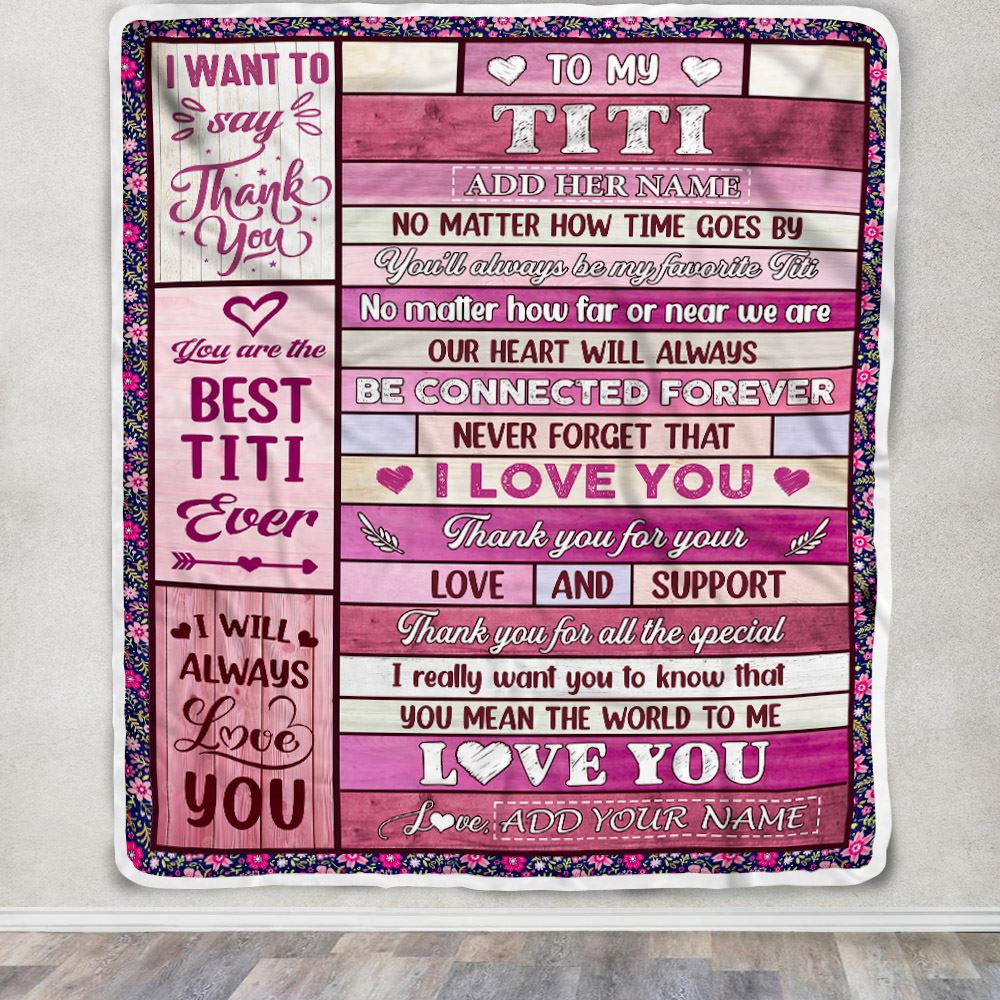 I WANT TO
say
Thank
You
You are the
BEST
TITI
Ever
I WILL
ALWAYS
Love
YOU
TO MY
TITI
ADD HER NAME
NO MATTER HOW TIME GOES BY
You'll always be my favorite Titi
No matter how far or near we are
OUR HEART WILL ALWAYS
BE CONNECTED FOREVER
NEVER FORGET THAT
I LOVE YOU
Thank you for your
LOVE AND SUPPORT
Thank you for all the special
I really want you to know that
YOU MEAN THE WORLD TO ME
LOVE YOU
Love, ADD YOUR NAME